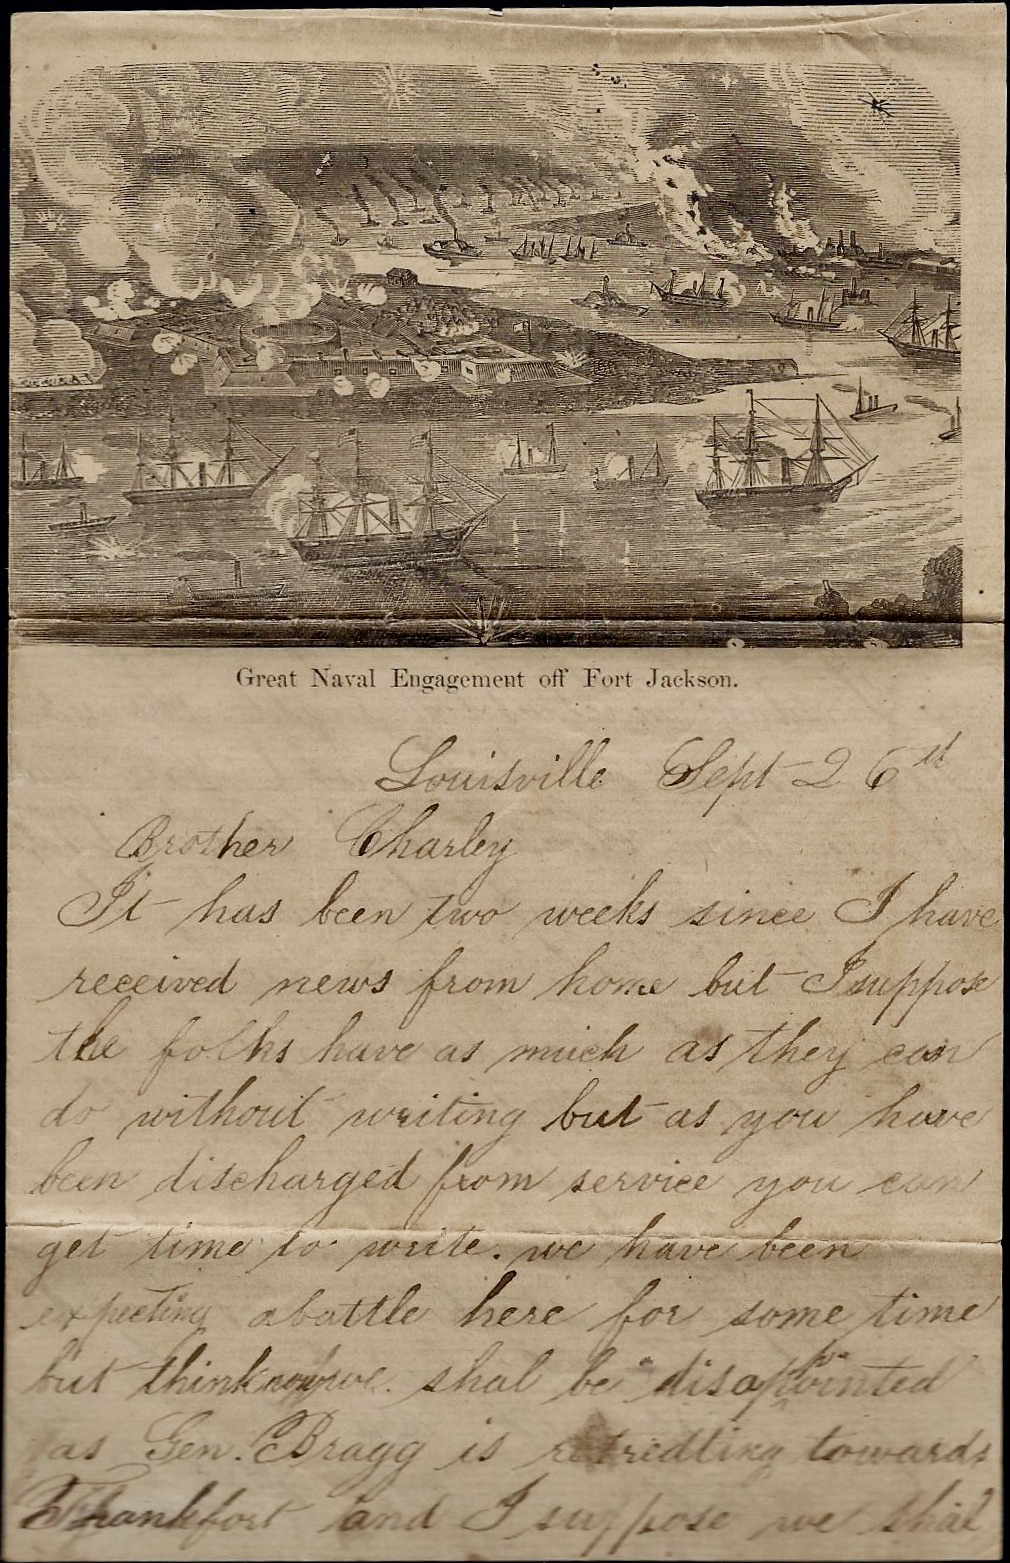 Great Naval Engagement off Fort Jackson.
Louisville Sept 26th
Brother Charley
It has been two weeks since I have
received news from home but I suppose
the folks have as much as they can
do without writing but as you have
been discharged from service you can
get time to write. we have been
expecting a battle here for some time
but think now we. shal be disapointed
as Gen. Bragg is retredting towards
Frankfort and I suppose we shal